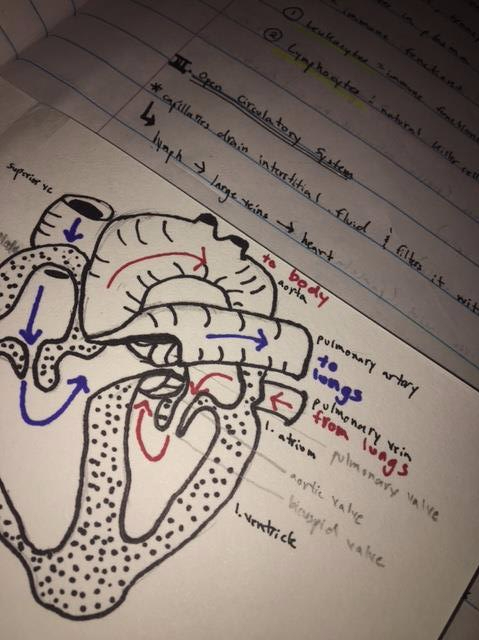 in plasma
immune functions
① Leukocytes = immune functions
② Lymphocyte : natural killer cell
III. Open Circulatory System
* capillaries drain interstitial fluid & filters it wit
↳ lymph → large veins → heart
superior vc
to body
aorta
pulmonary artery
to lungs
pulmonary vein
from lungs
l. atrium
pulmonary valve
aortic valve
bicuspid valve
l. ventricle